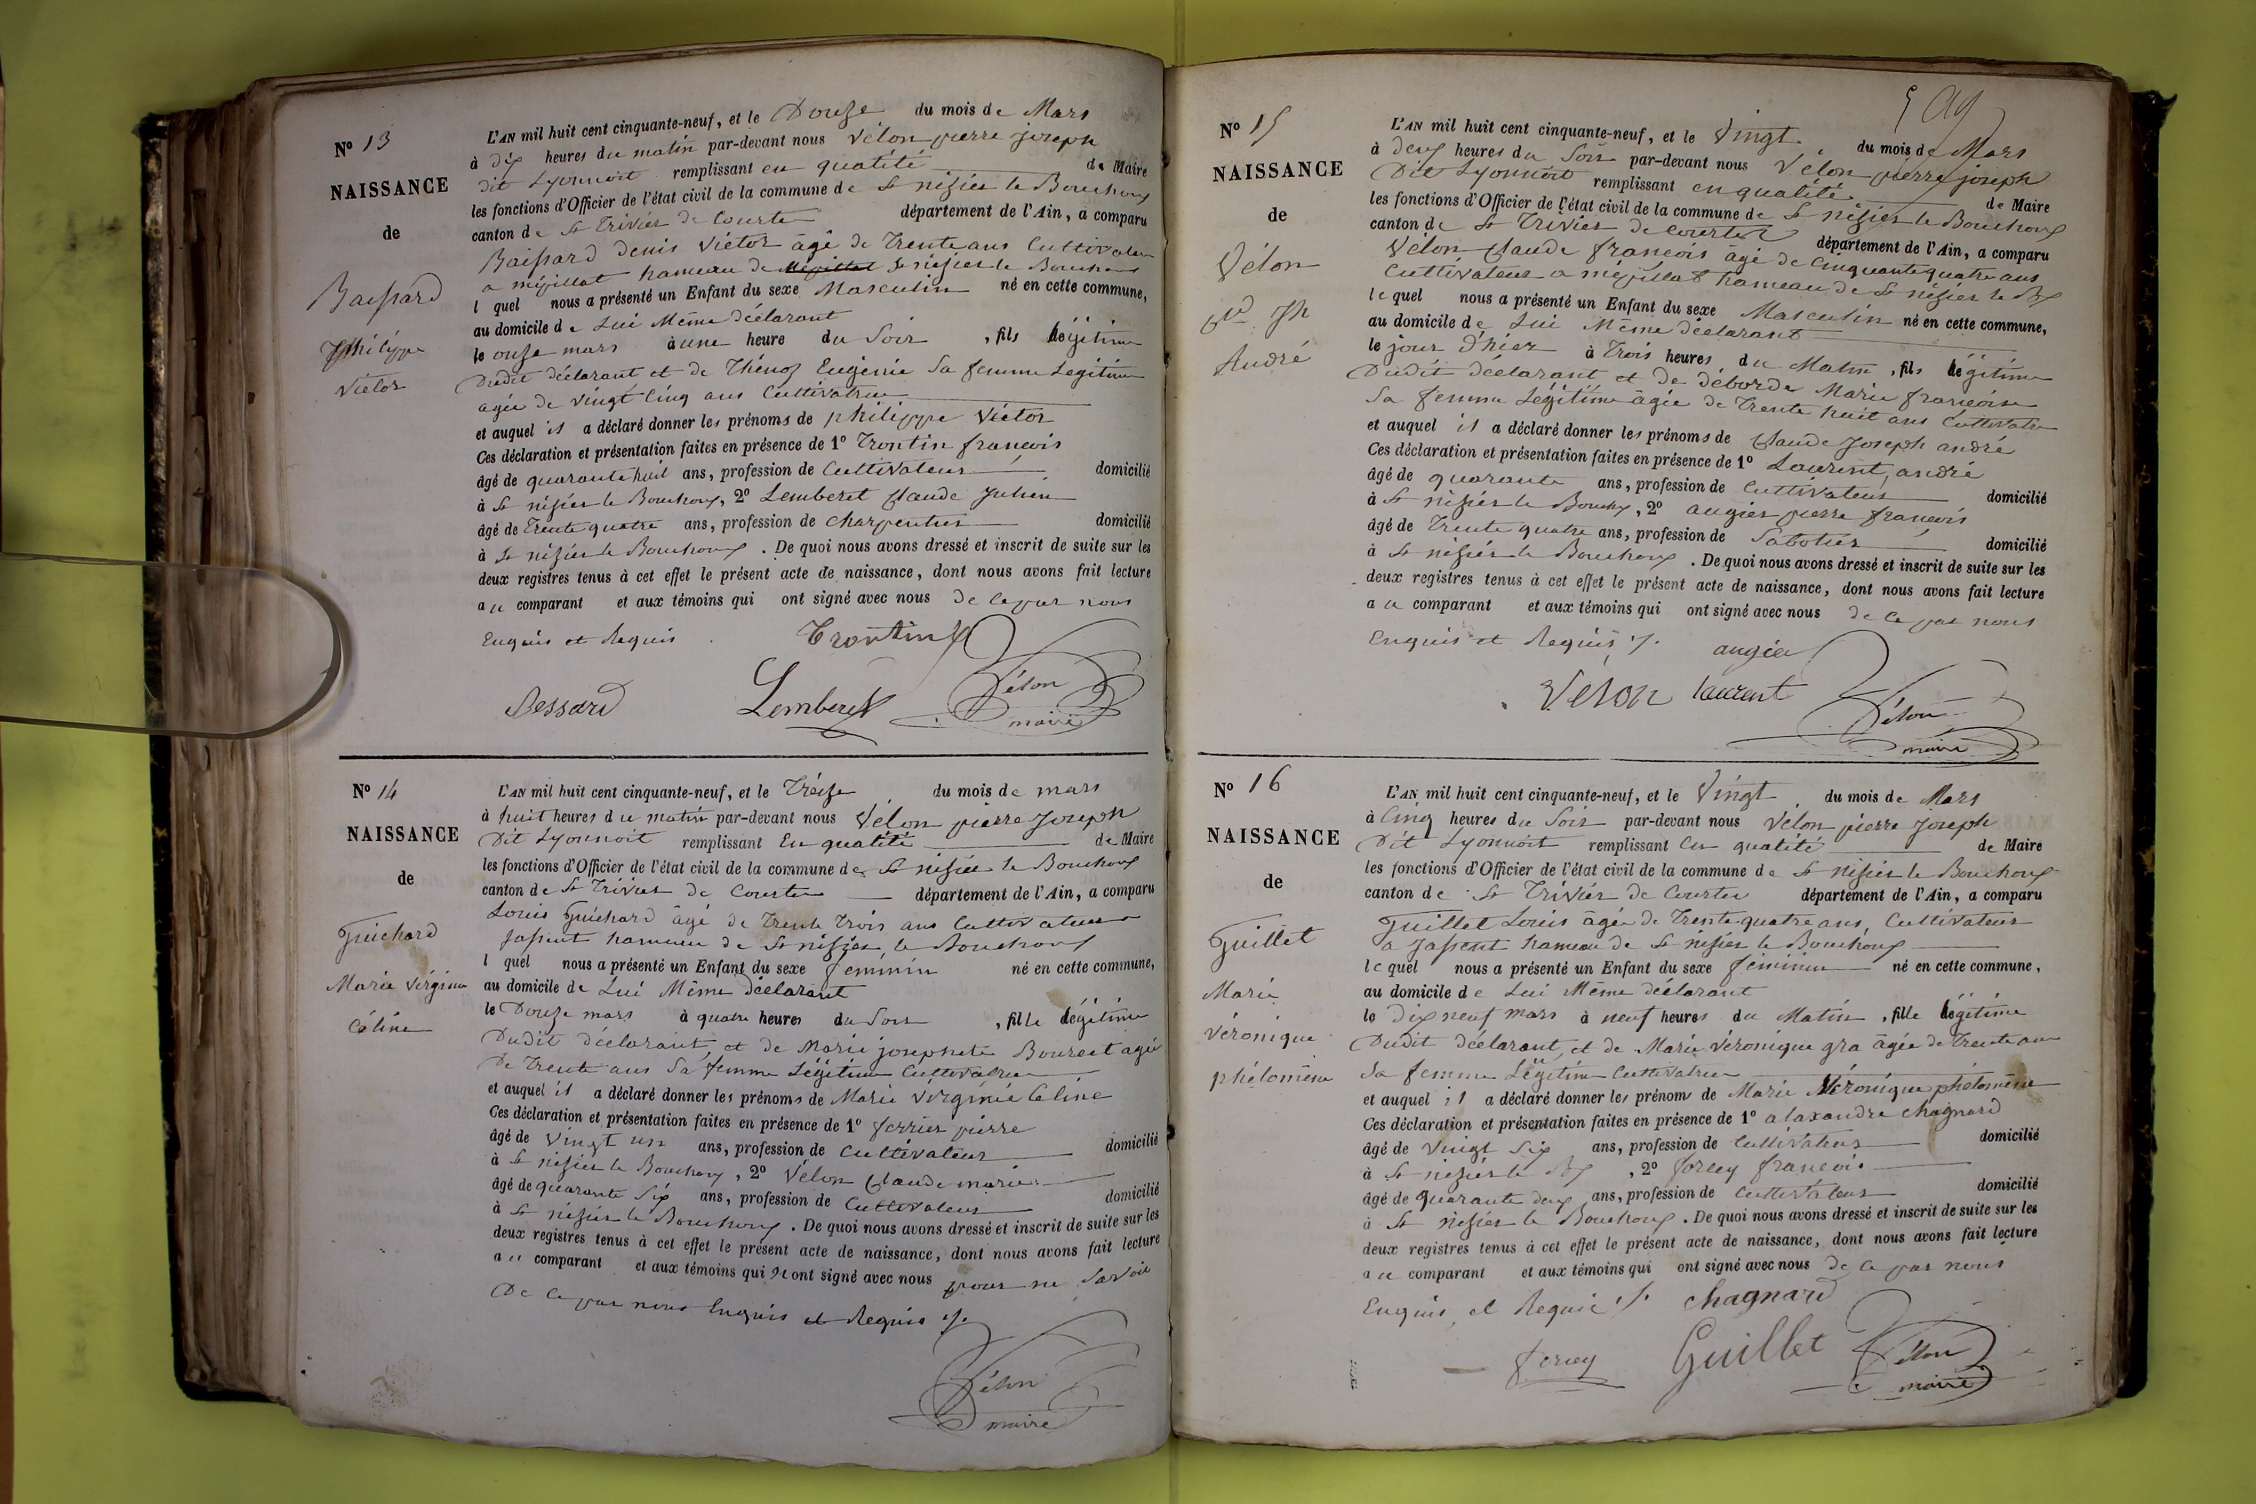 N° 13
NAISSANCE
de
Baissard
philippe
Victor
L'AN mil huit cent cinquante-neuf, et le Douze du mois de Mars
à dix heures du matin par-devant nous Vélon pierre joseph
dit Lyonnoit remplissant en qualité de Maire
les fonctions d'Officier de l'état civil de la commune de St nizier le Bouchoux
canton de St Trivier de Courte département de l'Ain, a comparu
Baissard denis Victor âgé de Trente ans Cultivateur
a mézillat hameau de St nizier le Bouchoux
l quel nous a présenté un Enfant du sexe Masculin né en cette commune,
au domicile de Lui Même déclarant
le onze mars à une heure du Soir , fils légitime
Dudit déclarant et de Thénoz Eugénie Sa femme Légitime
agée de vingt Cinq ans Cultivatrice
et auquel il a déclaré donner les prénoms de philippe Victor
Ces déclaration et présentation faites en présence de 1° Trontin françois
âgé de quarante huit ans, profession de Cultivateur domicilié
à St nizier le Bouchoux, 2° Lemberet Claude Julien
âgé de Trente quatre ans, profession de charpentier domicilié
à St nizier le Bouchoux. De quoi nous avons dressé et inscrit de suite sur les
deux registres tenus à cet effet le présent acte de naissance, dont nous avons fait lecture
au comparant et aux témoins qui ont signé avec nous de ce par nous
Enquis et Requis
Trontin
Bessard
Lemberet
Vélon
maire
N° 14
NAISSANCE
de
Guichard
Marie Virginie
Céline
L'AN mil huit cent cinquante-neuf, et le Treize du mois de mars
à huit heures du matin par-devant nous Vélon pierre Joseph
Dit Lyonnoit remplissant En qualité de Maire
les fonctions d'Officier de l'état civil de la commune de St nizier le Bouchoux
canton de St Trivier de Courte département de l'Ain, a comparu
Louis Guichard âgé de Trente Trois ans Cultivateur a
Jassent hameau de St nizier le Bouchoux
l quel nous a présenté un Enfant du sexe feminin né en cette commune,
au domicile de Lui Même déclarant
le Douze mars à quatre heures du Soir , fille légitime
Dudit déclarant et de Marie josephete Bourest agée
De Trente ans Sa femme Légitime Cultivatrice
et auquel il a déclaré donner les prénoms de Marie Virginie Céline
Ces déclaration et présentation faites en présence de 1° ferrier pierre
âgé de vingt un ans, profession de Cultivateur domicilié
à St nizier le Bouchoux, 2° Vélon Claude marie
âgé de quarante Six ans, profession de Cultivateur domicilié
à St nizier le Bouchoux. De quoi nous avons dressé et inscrit de suite sur les
deux registres tenus à cet effet le présent acte de naissance, dont nous avons fait lecture
au comparant et aux témoins qui n ont signé avec nous pour ne Savoir
De ce par nous Enquis et Requis ./.
Vélon
maire
5
N° 15
NAISSANCE
de
Vélon
Cde Jh
André
L'AN mil huit cent cinquante-neuf, et le Vingt du mois de Mars
à deux heures du Soir par-devant nous Vélon pierre joseph
Dit Lyonnoit remplissant en qualité de Maire
les fonctions d'Officier de l'état civil de la commune de St nizier le Bouchoux
canton de St Trivier de Courte département de l'Ain, a comparu
Vélon Claude françois âgé de Cinquante quatre ans
Cultivateur a mézillat hameau de St nizier le Bx
le quel nous a présenté un Enfant du sexe Masculin né en cette commune,
au domicile de Lui Même déclarant
le jour d'hier à Trois heures du Matin , fils légitime
Dudit déclarant et de déborde Marie françoise
Sa femme Légitime âgée de Trente huit ans Cultivatrice
et auquel il a déclaré donner les prénoms de Claude Joseph andré
Ces déclaration et présentation faites en présence de 1° Laurent, andré
âgé de quarante ans, profession de Cultivateur domicilié
à St nizier le Bouchoux, 2° augier pierre françois
âgé de Trente quatre ans, profession de Sabotier domicilié
à St nizier le Bouchoux. De quoi nous avons dressé et inscrit de suite sur les
deux registres tenus à cet effet le présent acte de naissance, dont nous avons fait lecture
au comparant et aux témoins qui ont signé avec nous de ce par nous
Enquis et Requis ./. augier
Velon laurent
Vélon
maire
N° 16
NAISSANCE
de
Guillet
Marie
Véronique
phélomène
L'AN mil huit cent cinquante-neuf, et le Vingt du mois de Mars
à Cinq heures du Soir par-devant nous Vélon pierre Joseph
Dit Lyonnoit remplissant En qualité de Maire
les fonctions d'Officier de l'état civil de la commune de St nizier le Bouchoux
canton de St Trivier de Courte département de l'Ain, a comparu
Guillet Louis âgé de Trente quatre ans, Cultivateur
a Jassent hameau de St nizier le Bouchoux
le quel nous a présenté un Enfant du sexe féminin né en cette commune,
au domicile de Lui Même déclarant
le Dix neuf mars à neuf heures du Matin , fille légitime
Dudit déclarant, et de Marie Véronique gra âgée de Trente ans
Sa femme Légitime Cultivatrice
et auquel il a déclaré donner les prénoms de Marie Véronique phélomène
Ces déclaration et présentation faites en présence de 1° alaxandre chagnard
âgé de vingt Six ans, profession de Cultivateur domicilié
à St nizier le Bx, 2° forey françois
âgé de quarante deux ans, profession de Cultivateur domicilié
à St nizier le Bouchoux. De quoi nous avons dressé et inscrit de suite sur les
deux registres tenus à cet effet le présent acte de naissance, dont nous avons fait lecture
au comparant et aux témoins qui ont signé avec nous de ce par nous
Enquis et Requis ./. chagnard
forey Guillet Vélon
maire